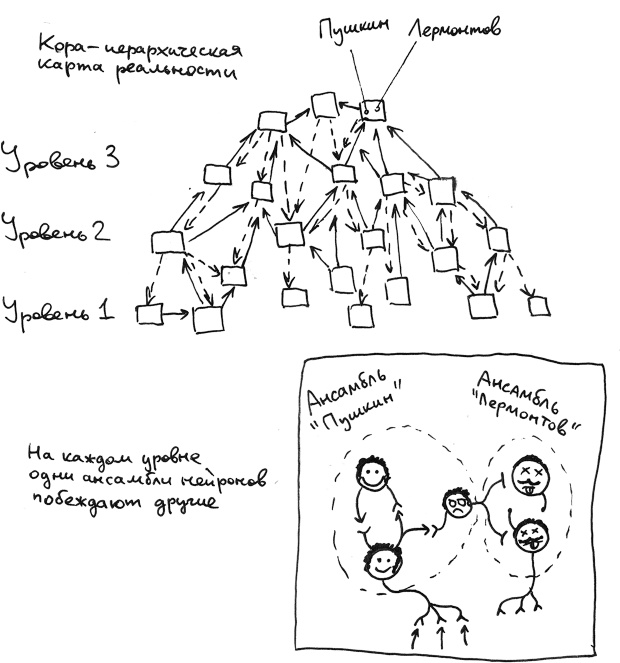 Кора–иерархическая
карта реальности
Пушкин
Лермонтов
Уровень 3
Уровень 2
Уровень 1
На каждом уровне
одни ансамбли нейронов
побеждают другие
Ансамбль
"Пушкин"
Ансамбль
"Лермонтов"